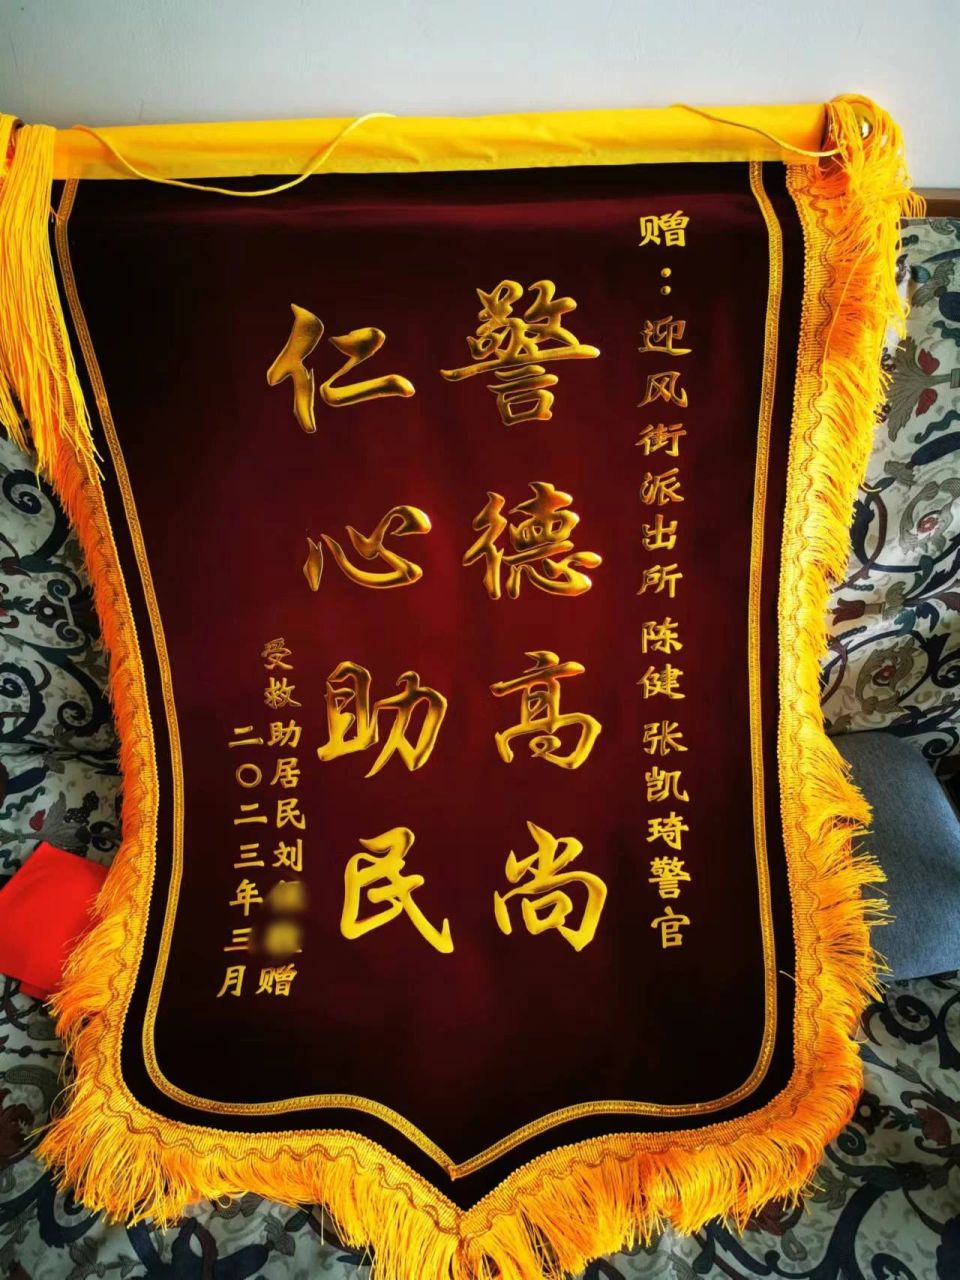 赠：迎风街派出所 陈健 张凯琦警官
警德高尚
仁心助民
受救助居民刘 赠
二〇二三年三月